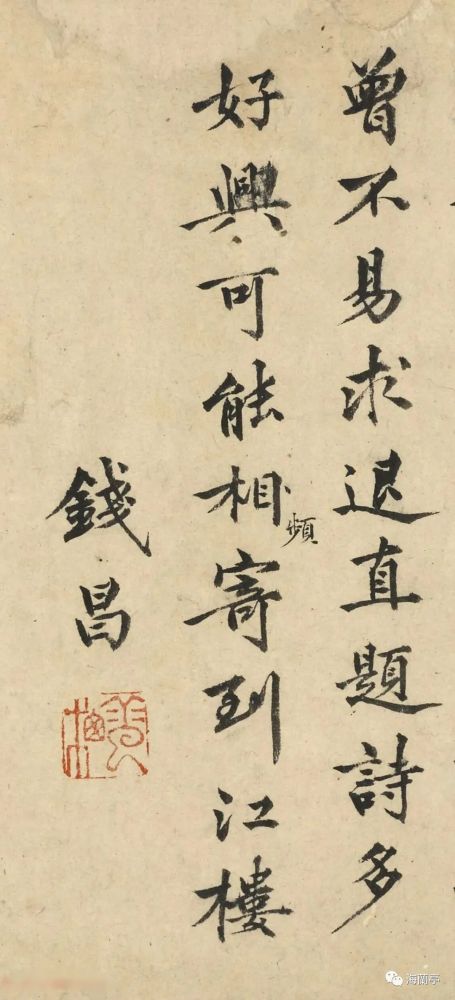 曾不易求退直題詩多
好興可能相頻寄到江樓
錢昌
海蘭亭